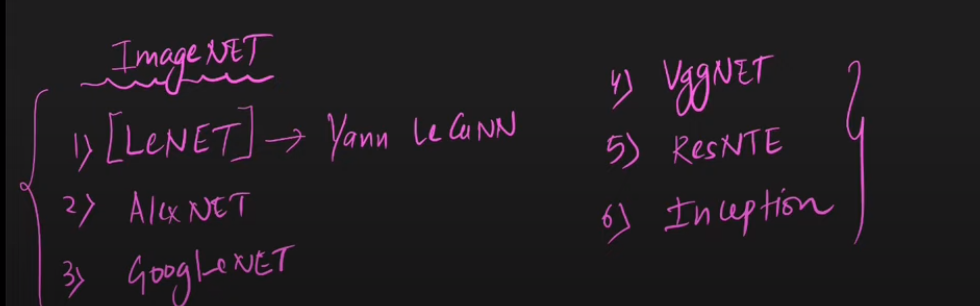 ImageNET
1) [LeNET] → Yann LeCuNN
2) AlexNET
3) GoogLeNET
4) VggNET
5) ResNTE
6) Inception